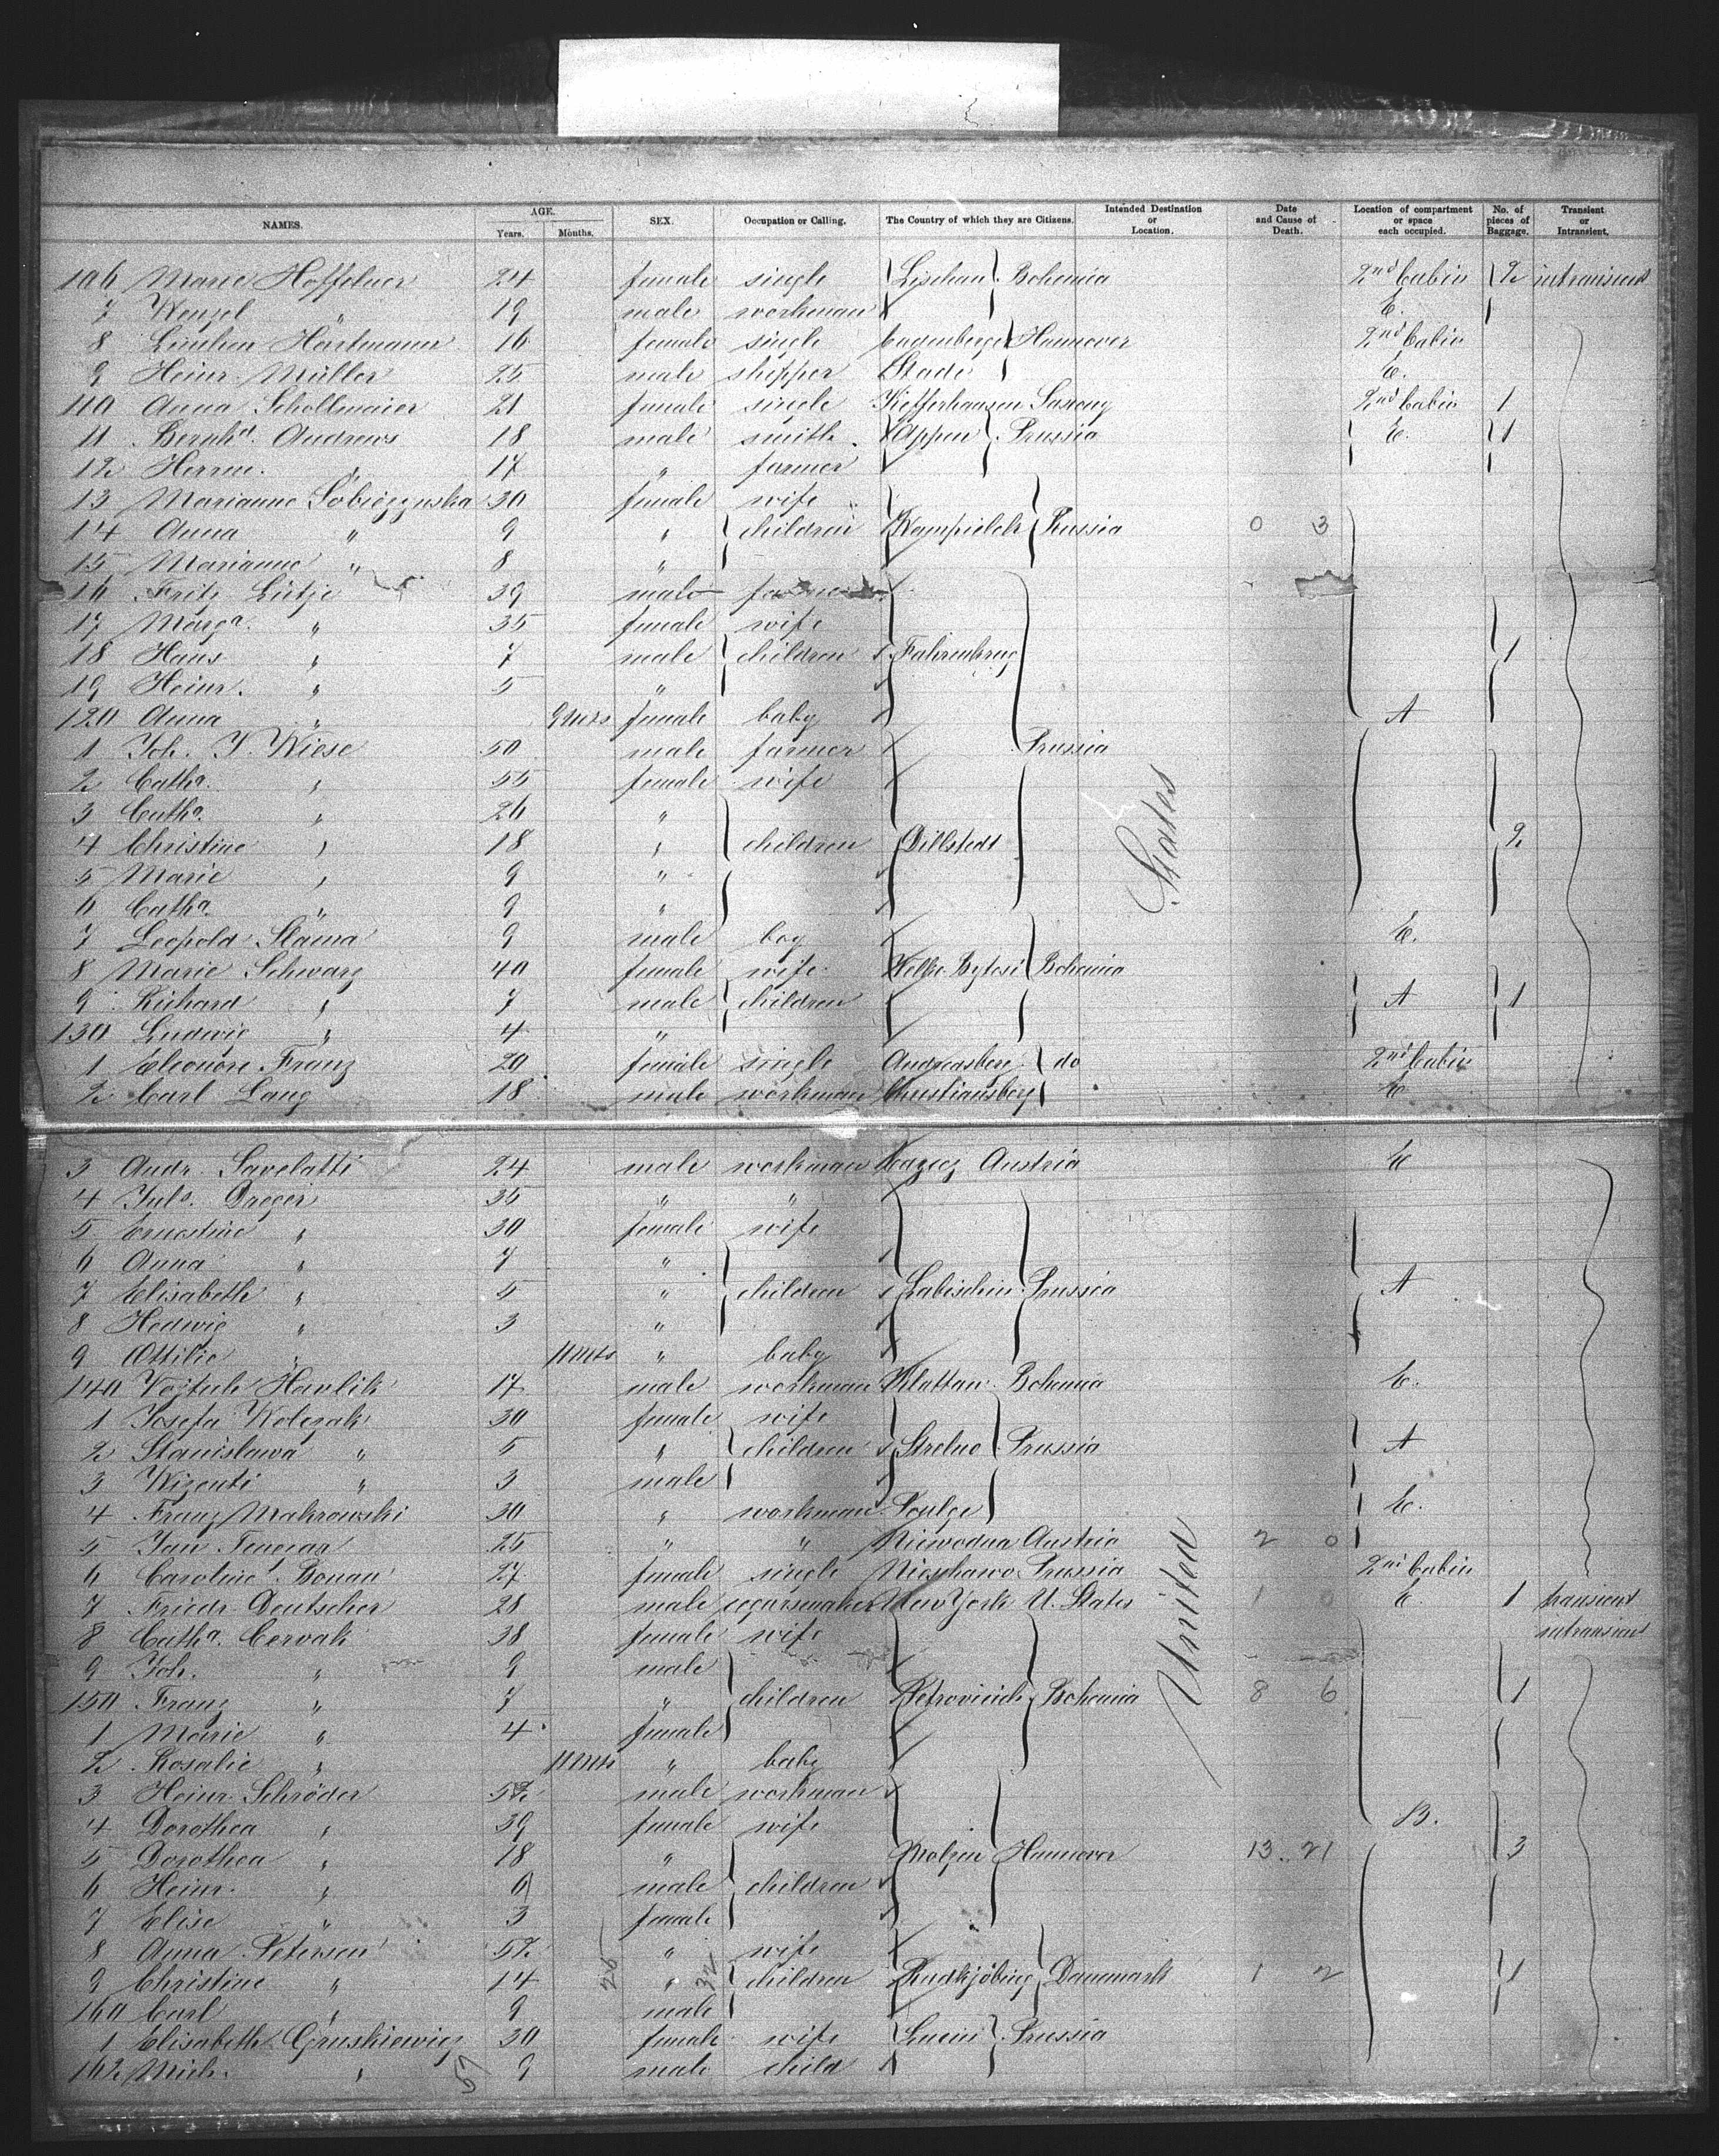 NAMES. AGE. Years. Months. SEX. Occupation or Calling. The Country of which they are Citizens. Intended Destination or Location. Date and Cause of Death. Location of compartment or space each occupied. No. of pieces of Baggage. Transient or Intransient.
106 Marie 24 female single Bohemia 2nd Cabin 2 intransient
7 Wenzel " 19 male workman E.
8 Hartmann 16 female single Hannover 2nd Cabin
9 Heinr. Müller 25 male skipper Stade E.
110 Anna Schollmaier 21 female single Saxony 2nd Cabin 1
11 Bernhd. Andrews 18 male smith Appen Prussia E. 1
12 Herrm. " 17 " farmer
13 Marianne 30 female wife
14 Anna " 9 " children Russia 0 3
15 Marianne " 8 "
16 Fritz Lütje 39 male farmer
17 Marga. " 35 female wife
18 Hans " 7 male children Fahrenkrug 1
19 Heinr. " 5 "
120 Anna " 9 mts female baby A
1 Joh. J. Wiese 50 male farmer Prussia
2 Catha. " 55 female wife
3 Catha. " 26 "
4 Christine " 18 " children Dillstedt 2
5 Marie " 9 "
6 Catha. " 9 "
7 Leopold Slama 9 male boy E.
8 Marie Schwarz 40 female wife Bohemia
9 Richard " 7 male children A 1
130 Ludwig " 4 "
1 Eleonore Franz 20 female single Andreasberg do 2nd Cabin
2 Carl Lang 18 male workman Christiansberg E
States
3 Andr. Savelatti 24 male workman Austria E
4 Juls. Daeger 35 " "
5 Ernestine " 30 female wife
6 Anna " 7 "
7 Elisabeth " 5 " children Labischin Prussia A
8 Hedwig " 3 "
9 Ottilie " 11 mts " baby
140 Havlik 17 male workman Klattau Bohemia E.
1 Josefa Wolczak 30 female wife
2 Stanislawa " 5 " children Strelno Prussia A
3 Wizenti " 3 male
4 Franz Makrowski 30 " workman E.
5 Jan 25 " " Austria 2 0
6 Caroline 27 female single Prussia 2nd Cabin
7 Friedr. Deutscher 28 male cegarsmaker New York U. States 1 0 E. 1 transient
8 Catha. Cervak 38 female wife intransient
9 Joh. " 9 male
150 Franz " 7 " children Bohemia 8 6 1
1 Marie " 4 female
2 Rosalie " 11 mts " baby
United
3 Heinr. Schröder 52 male workman
4 Dorothea " 39 female wife B.
5 Dorothea " 18 " Hannover 13 21 3
6 Heinr. " 9 male children
7 Elise " 3 female
8 Anna Petersen 52 " wife
9 Christine " 14 " children Rudkjöbing Danemark 1 2 1
26 32
160 Carl " 9 male
1 Elisabeth Gruskiewicz 30 female wife Prussia
162 Mich. " 9 male child
57